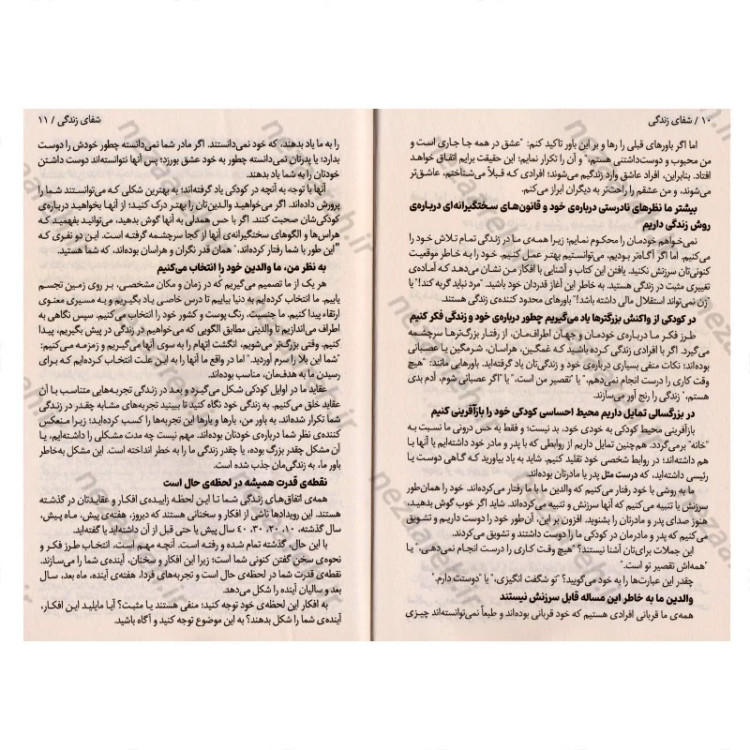 ۱۰ / شفای زندگی
اما اگر باورهای قبلی را رها و بر این باور تاکید کنم: "عشق در همه جا جاری است و
من محبوب و دوست‌داشتنی هستم،" و آن را تکرار نمایم؛ این حقیقت برایم اتفاق خواهد
افتاد. بنابراین، افراد عاشق وارد زندگیم می‌شوند؛ افرادی که قبلاً می‌شناختم، عاشق‌تر
می‌شوند، و من عشقم را راحت‌تر به دیگران ابراز می‌کنم.
بیشتر ما نظرهای نادرستی درباره‌ی خود و قانون‌های سختگیرانه‌ای درباره‌ی
روش زندگی داریم
نمی‌خواهم خودمان را محکوم نمایم؛ زیرا همه‌ی ما در زندگی تمام تلاش خود را
می‌کنیم. اما اگر آگاه‌تر بودیم، می‌توانستیم بهتر عمل کنیم. خود را به خاطر موقعیت
کنونی‌تان سرزنش نکنید. یافتن این کتاب و آشنایی با افکار من نشان می‌دهد که آماده‌ی
تغییری مثبت در زندگی هستید. به خاطر این آغاز قدردان خود باشید. "مرد نباید گریه کند!" یا
"زن نمی‌تواند استقلال مالی داشته باشد!" باورهای محدود کننده‌ی زندگی هستند.
در کودکی از واکنش بزرگترها یاد می‌گیریم چطور درباره‌ی خود و زندگی فکر کنیم
طرز فکر ما درباره‌ی خودمان و جهان اطراف‌مان، از رفتار بزرگ‌ترها سرچشمه
می‌گیرد. اگر با افرادی زندگی کرده باشید که غمگین، هراسان، شرمگین یا عصبانی
بوده‌اند؛ نکات منفی بسیاری درباره‌ی خود و زندگی‌تان یاد گرفته‌اید. باورهایی مانند: "هیچ
وقت کاری را درست انجام نمی‌دهم،" یا "تقصیر من است،" یا "اگر عصبانی شوم، آدم بدی
هستم،" زندگی را رنج آور می‌سازند.
در بزرگسالی تمایل داریم محیط احساسی کودکی خود را بازآفرینی کنیم
بازآفرینی محیط کودکی به خودی خود، بد نیست؛ و فقط به حس درونی ما نسبت به
"خانه" برمی‌گردد. هم‌چنین تمایل داریم از روابطی که با پدر و مادر خود داشته‌ایم یا آنها با
هم داشته‌اند؛ در روابط شخصی خود تقلید کنیم. شاید به یاد بیاورید که گاهی دوست یا
رئیسی داشته‌اید، که درست مثل پدر یا مادرتان بوده‌اند.
ما به روشی با خود رفتار می‌کنیم که والدین ما با ما رفتار می‌کرده‌اند. خود را همان‌طور
سرزنش یا تنبیه می‌کنیم که آنها سرزنش و تنبیه می‌کرده‌اند. شاید اگر خوب گوش بدهید،
هنوز صدای پدر و مادرتان را بشنوید. افزون بر این، آن‌طور خود را دوست داریم و تشویق
می‌کنیم که پدر و مادرمان در کودکی ما را دوست داشتند و تشویق می‌کردند.
این جملات برای‌تان آشنا نیستند؟ "هیچ وقت کاری را درست انجام نمی‌دهی،" یا
"همه‌اش تقصیر تو است."
چقدر این عبارت‌ها را به خود می‌گویید؟ "تو شگفت انگیزی،" یا "دوستت دارم."
والدین ما به خاطر این مساله قابل سرزنش نیستند
همه‌ی ما قربانی افرادی هستیم که خود قربانی بوده‌اند و طبعاً نمی‌توانسته‌اند چیزی
شفای زندگی / ۱۱
را به ما یاد بدهند، که خود نمی‌دانستند. اگر مادر شما نمی‌دانسته چطور خودش را دوست
بدارد؛ یا پدرتان نمی‌دانسته چطور به خود عشق بورزد؛ پس آنها نتوانسته‌اند دوست داشتن
خودتان را به شما یاد بدهند.
آنها با توجه به آنچه در کودکی یاد گرفته‌اند؛ به بهترین شکلی که می‌توانستند شما را
پرورش داده‌اند. اگر می‌خواهید والدین‌تان را بهتر درک کنید؛ از آنها بخواهید درباره‌ی
کودکی‌شان صحبت کنند. اگر با حس همدلی به آنها گوش بدهید، می‌توانید بفهمید که
هراس‌ها و الگوهای سختگیرانه‌ی آنها از کجا سرچشمه گرفته است. این دو نفری که
"این طور با شما رفتار کرده‌اند،" همان قدر نگران و هراسان بوده‌اند، که شما هستید.
به نظر من، ما والدین خود را انتخاب می‌کنیم
هر یک از ما تصمیم می‌گیریم که در زمان و مکان مشخصی، بر روی زمین تجسم
یابیم. ما انتخاب کرده‌ایم به دنیا بیاییم تا درس خاصی یاد بگیریم و به مسیری معنوی
ارتقاء پیدا کنیم. ما جنسیت، رنگ پوست و کشور خود را انتخاب می‌کنیم. سپس نگاهی به
اطراف می‌اندازیم تا والدینی مطابق الگویی که می‌خواهیم در زندگی در پیش بگیریم، پیدا
کنیم. وقتی بزرگ‌تر می‌شویم، انگشت اتهام را به سوی آنها می‌گیریم و زمزمه می‌کنیم:
"شما این بلا را سرم آوردید." اما در واقع ما آنها را به این علت انتخاب کرده‌ایم که برای
رسیدن ما به هدف‌مان، مناسب بوده‌اند.
عقاید ما در اوایل کودکی شکل می‌گیرد و بعد در زندگی تجربه‌هایی متناسب با آن
عقاید خلق می‌کنیم. به زندگی خود نگاه کنید تا ببینید تجربه‌های مشابه چقدر در زندگی
شما تکرار شده‌اند. به باور من، بارها و بارها این تجربه‌ها را کسب کرده‌اید؛ زیرا منعکس
کننده‌ی نظر شما درباره‌ی خودتان بوده‌اند. مهم نیست چه مدت مشکلی را داشته‌ایم، یا
آن مشکل چقدر بزرگ بوده، یا چقدر زندگی ما را به خطر انداخته است. این مشکل به‌خاطر
باور ما، به زندگی‌مان جذب شده است.
نقطه‌ی قدرت همیشه در لحظه‌ی حال است
همه‌ی اتفاق‌های زندگی شما تا این لحظه زاییده‌ی افکار و عقایدتان در گذشته
است. این رویدادها ناشی از افکار و سخنانی هستند که دیروز، هفته‌ی پیش، ماه پیش،
سال گذشته، ۱۰، ۲۰، ۳۰، ۴۰ سال پیش یا حتی قبل از آن داشته‌اید یا گفته‌اید.
با این حال، گذشته تمام شده و رفته است. آنچه مهم است، انتخاب طرز فکر و
نحوه‌ی سخن گفتن کنونی شما است؛ زیرا این افکار و سخنان، آینده‌ی شما را می‌سازند.
نقطه‌ی قدرت شما در لحظه‌ی حال است و تجربه‌های فردا، هفته‌ی آینده، ماه بعد، سال
بعد و سالیان آینده را شکل می‌دهد.
به افکار این لحظه‌ی خود توجه کنید؛ منفی هستند یا مثبت؟ آیا مایلید این افکار،
آینده‌ی شما را شکل بدهند؟ به این موضوع توجه کنید و آگاه باشید.